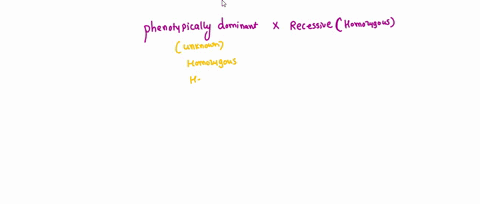 phenotypically dominant x Recessive (Homozygous)
(unknown)
Homozygous
H.